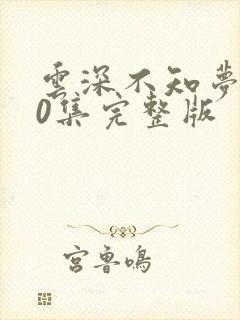 雲深不知夢
0集完整版
宮魯鳴